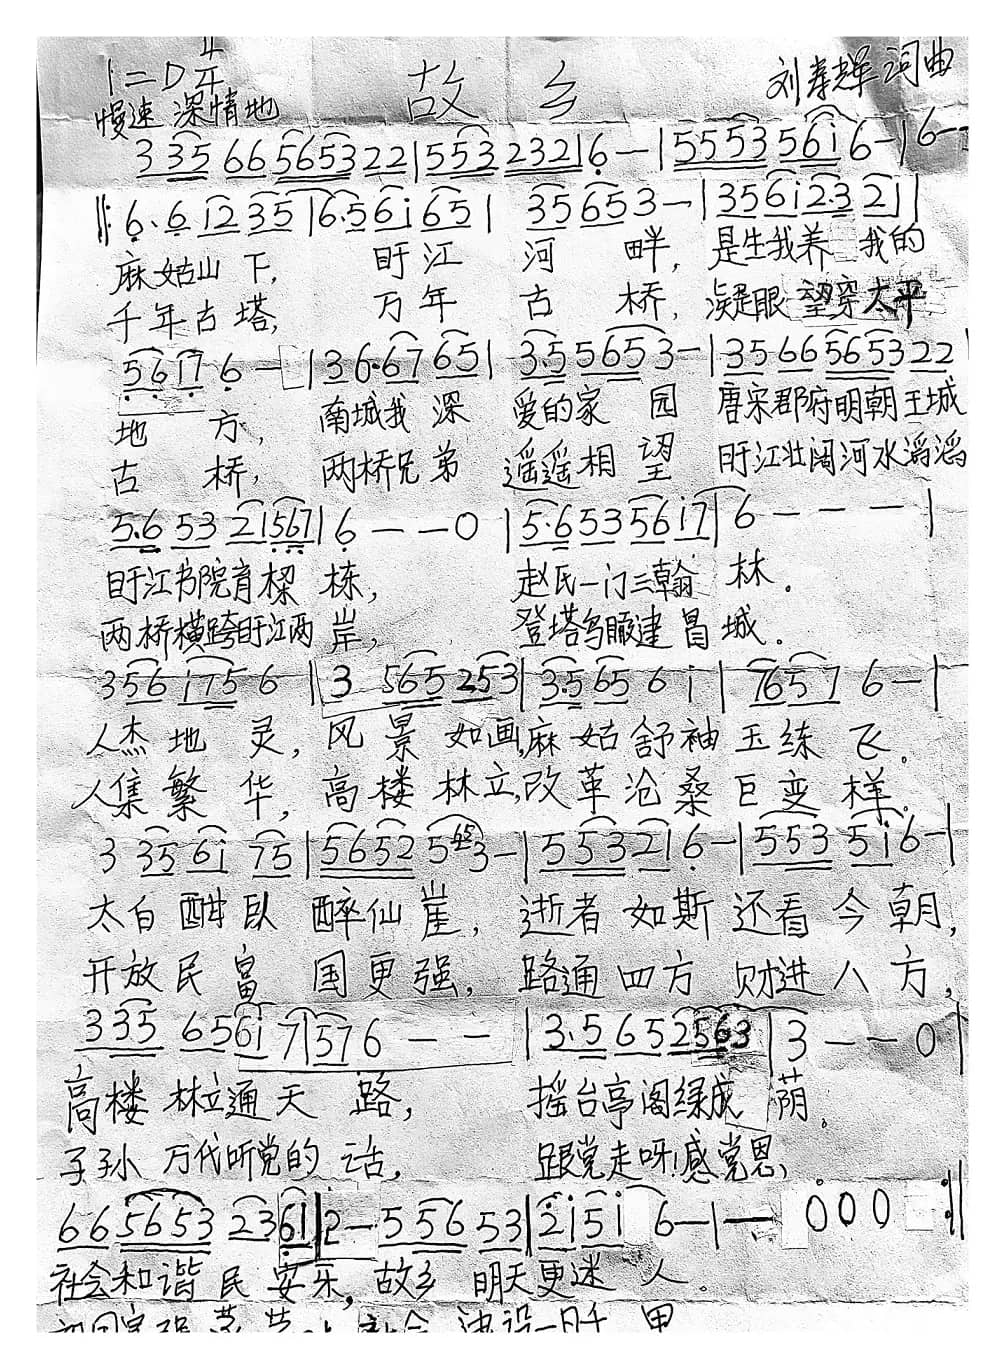 1=D 4/4 故乡 刘春辉词曲
慢速 深情地
3 35 66 5653 22 | 553 2321 6 — | 5553 561 6 — | 6 — —
‖: 6·6 12 35 | 6·561 65 | 3565 3 — | 3561 2·3 21 |
麻姑山下, 盱江河畔, 是生我养我的
千年古塔, 万年古桥, 凝眼望穿太平
5617 6 — | 36·67 65 | 3·5 565 3 — | 35 66 5653 22
地方, 南城我深爱的家园 唐宋郡府明朝王城
古桥, 两桥兄弟遥遥相望 盱江壮阔河水滔滔
5·6 53 21567 | 6 — — 0 | 5·653 5617 | 6 — — — |
盱江书院育樑栋, 赵氏一门三翰林。
两桥横跨盱江两岸, 登塔鸟瞰建昌城。
356 175 6 | 3 565 253 | 3·565 6 1 | 7657 6 — |
人杰地灵, 风景如画, 麻姑舒袖玉练飞。
人集繁华, 高楼林立, 改革沧桑巨变样。
3 35 61 75 | 5652 5 65 3 — | 553 21 6 — | 553 51 6 — |
太白酣卧醉仙崖, 逝者如斯还看今朝,
开放民富国更强, 路通四方财进八方,
335 6561 7 | 57 6 — — | 3·5 652563 | 3 — — 0 |
高楼林立通天路, 摇台亭阁绿成荫。
子孙万代听党的话, 跟党走呀!感党恩,
66 5653 2361 | 2 — 556 53 | 2151 6 — | — 000 :‖
社会和谐民安乐, 故乡明天更迷人。